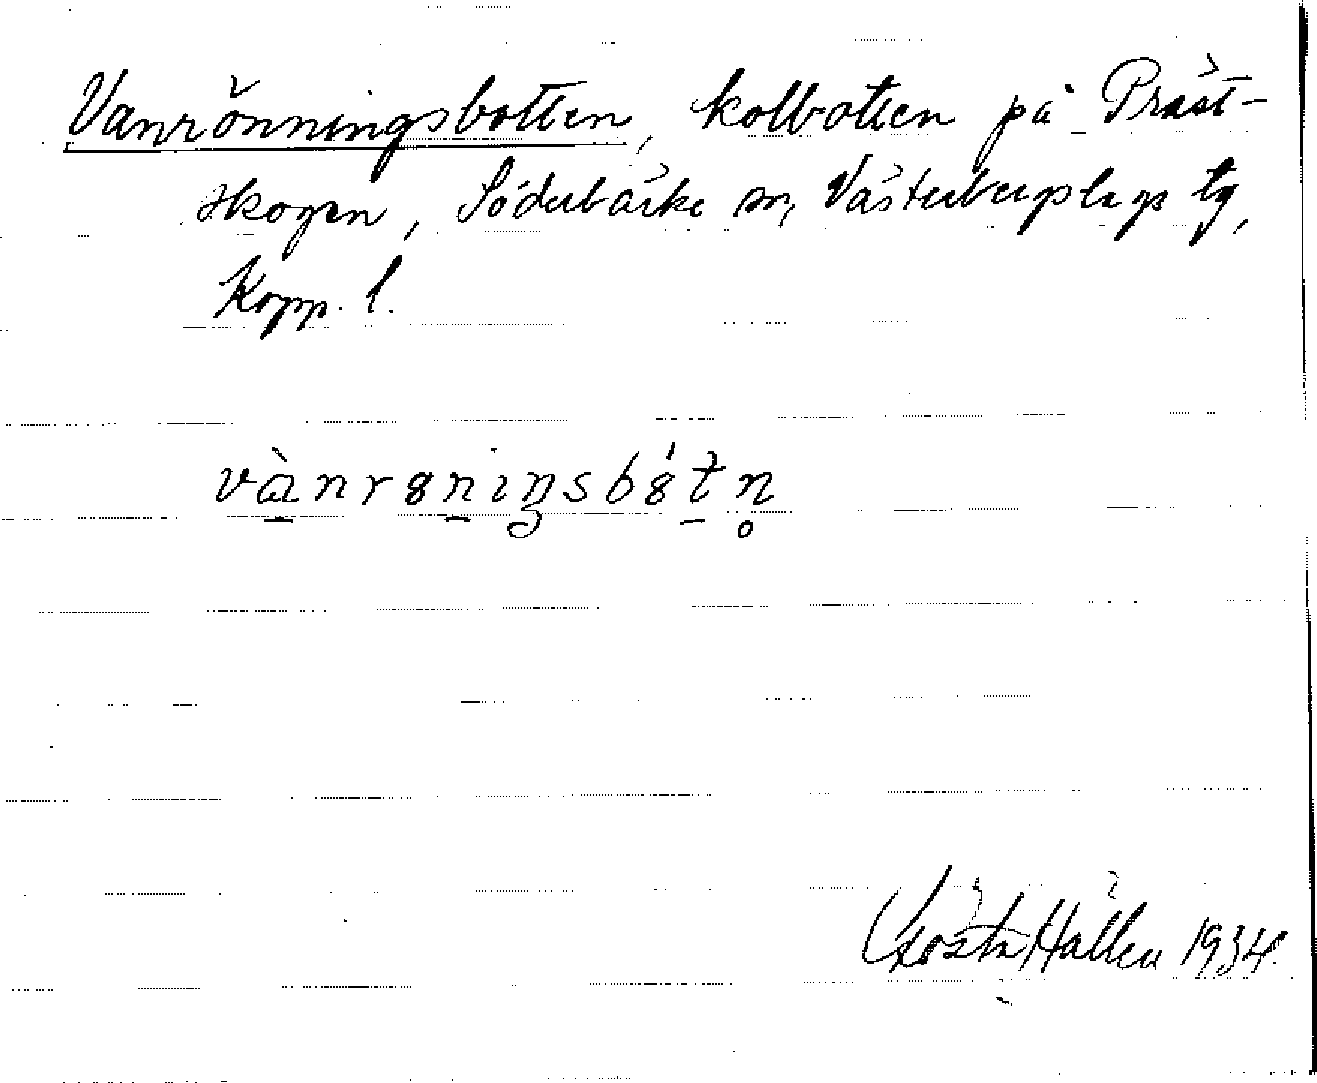 Vanrönningsbotten, kolbotten på Präst-
skogen, Söderbärke sn, Västerbergslags tg,
Kopp. l.
vànrȣnıŋsbȣ́tn̥
Gösta Hallén 1934.